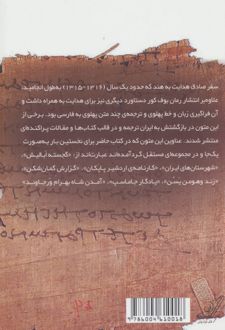 سفر صادق هدایت به هند که حدود یک سال (۱۳۱۶-۱۳۱۵) به‌طول انجامید،
علاوه‌بر انتشار رمان بوف کور دستاورد دیگری نیز برای هدایت به همراه داشت و
آن فراگیری زبان و خط پهلوی و ترجمه‌ی چند متن پهلوی به فارسی بود. برخی از
این متون در بازگشتش به ایران ترجمه و در قالب کتاب‌ها و مقالات پراکنده‌ای
منتشر شدند. عناوین این متون که در کتاب حاضر برای نخستین بار به‌صورت
یک‌جا و در مجموعه‌ای مستقل گرد آمده‌اند عبارت‌اند از: «گجسته ابالیش»،
«شهرستان‌های ایران»، «کارنامه‌ی اردشیر پاپکان»، «گزارش گمان‌شکن»،
«زند وهومن یسن»، «یادگار جاماسپ»، «آمدن شاه بهرام ورجاوند»
9786004610018